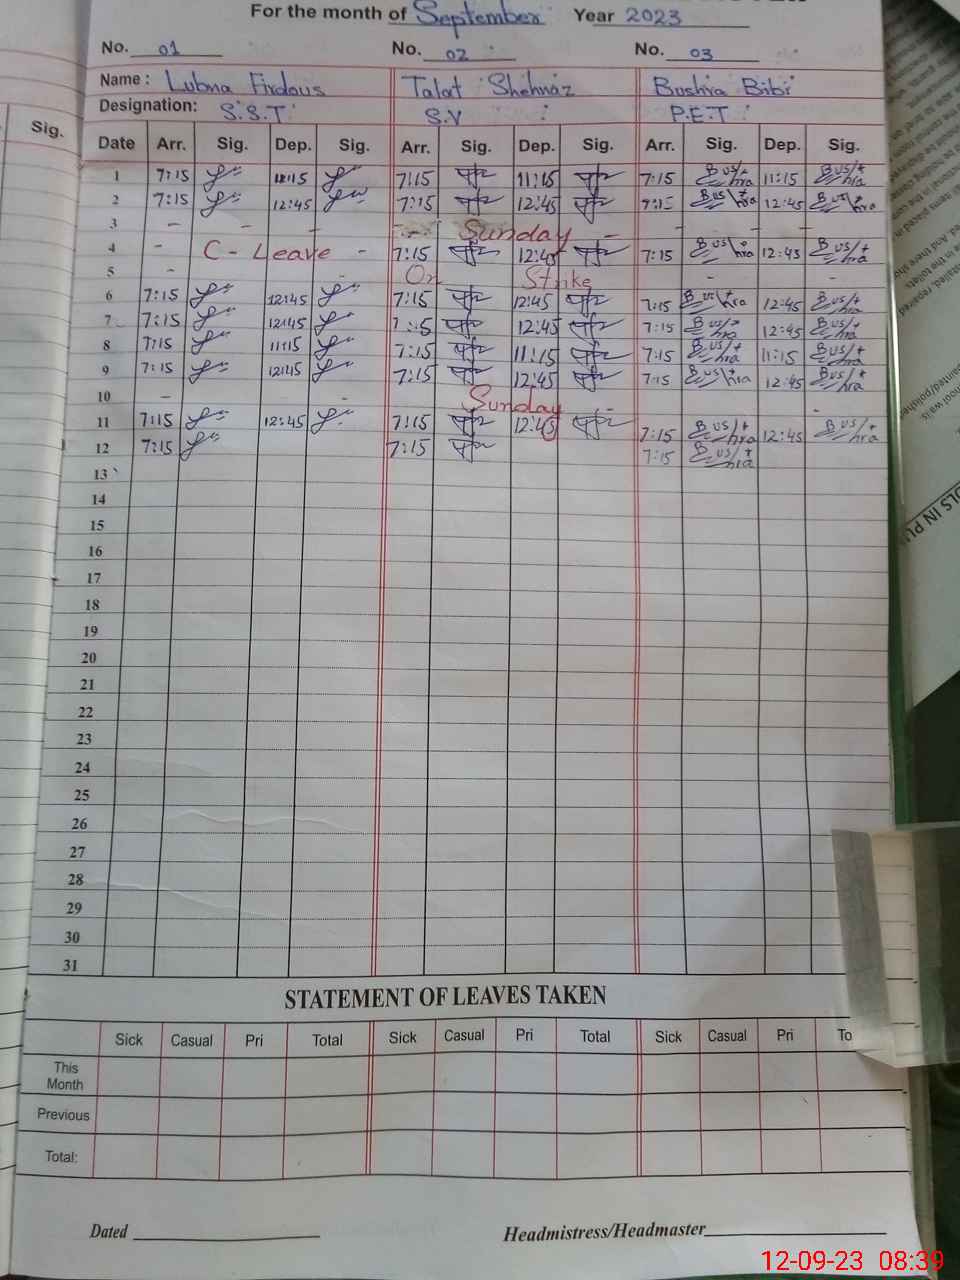 For the month of September Year 2023
No. 01 No. 02 No. 03
Name : Lubna Firdous Talat Shehnaz Bushra Bibi
Designation: S.S.T S.V P.E.T
Sig. Date Arr. Sig. Dep. Sig. Arr. Sig. Dep. Sig. Arr. Sig. Dep. Sig.
1 7:15 11:15 7:15 11:15 7:15 Bushra 11:15 Bushra
2 7:15 12:45 7:15 12:45 7:15 Bushra 12:45 Bushra
3 - - - - - Sunday - - - - -
4 - C - Leave - 7:15 12:45 7:15 Bushra 12:45 Bushra
5 - - On Strike - -
6 7:15 12:45 7:15 12:45 7:15 Bushra 12:45 Bushra
7 7:15 12:45 7:15 12:45 7:15 Bushra 12:45 Bushra
8 7:15 11:15 7:15 11:15 7:15 Bushra 11:15 Bushra
9 7:15 12:45 7:15 12:45 7:15 Bushra 12:45 Bushra
10 - - Sunday - -
11 7:15 12:45 7:15 12:45 7:15 Bushra 12:45 Bushra
12 7:15 7:15 7:15 Bushra
13
14
15
16
17
18
19
20
21
22
23
24
25
26
27
28
29
30
31
STATEMENT OF LEAVES TAKEN
Sick Casual Pri Total Sick Casual Pri Total Sick Casual Pri To
This
Month
Previous
Total:
Dated Headmistress/Headmaster
12-09-23 08:39